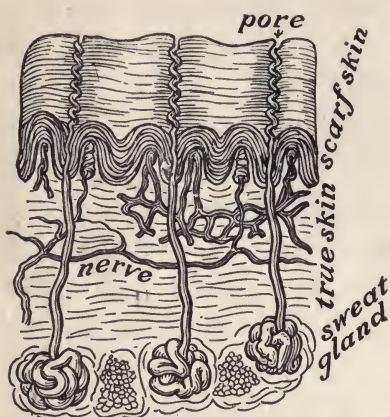 pore
scarf skin
true skin
nerve
sweat
gland